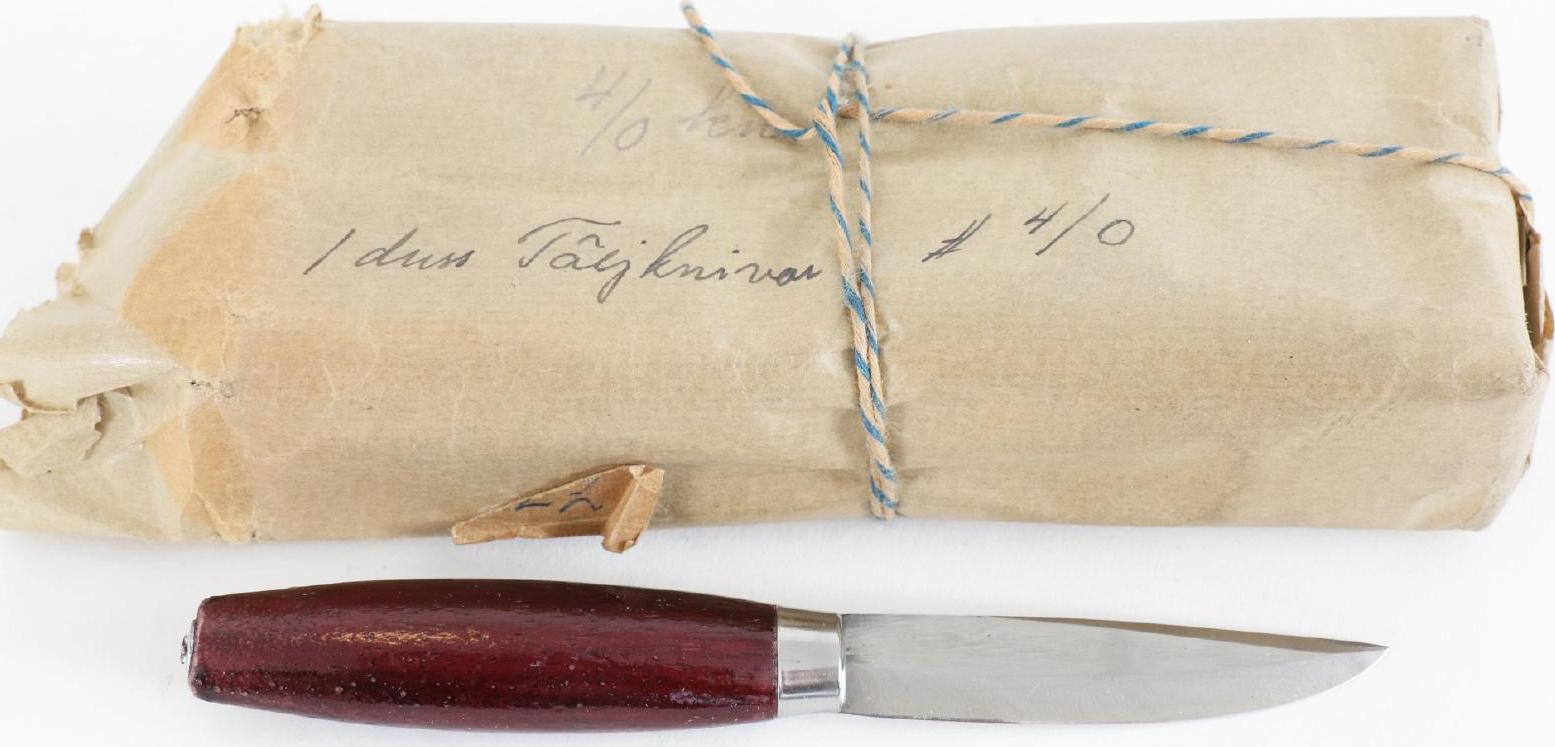 4/0
1 duss Täljknivar # 4/0